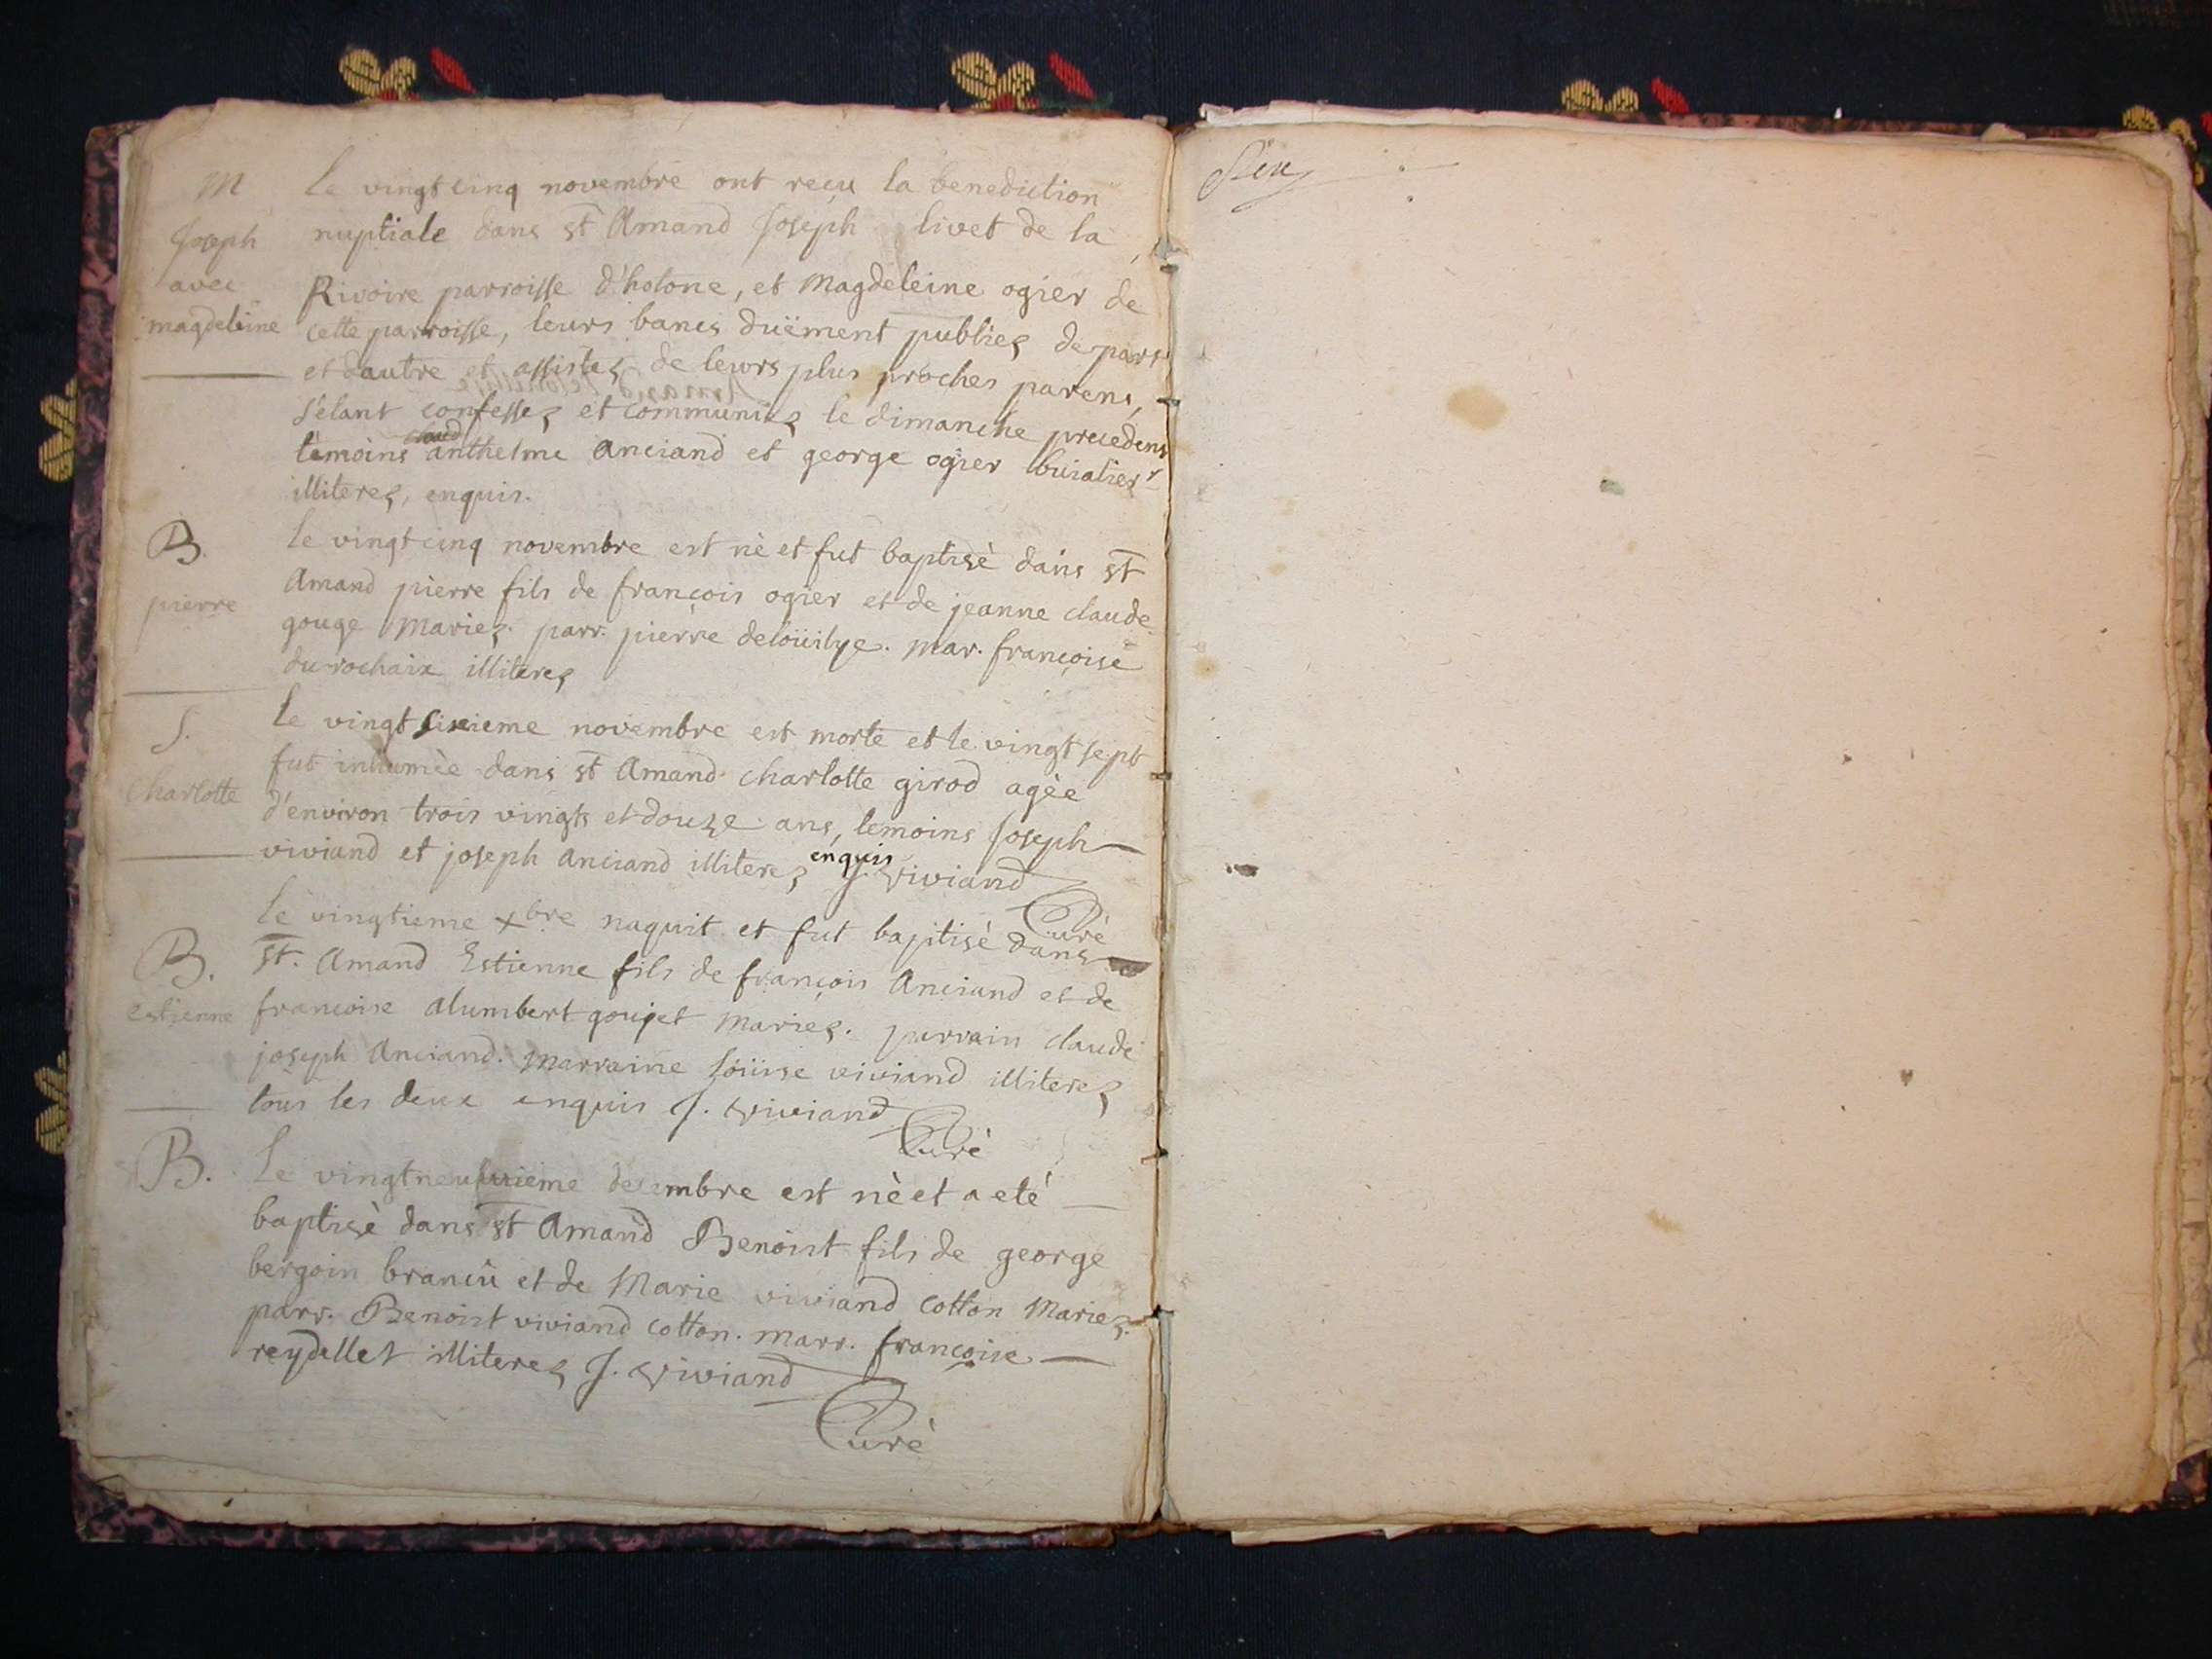 M
Joseph
avec
magdeleine
Le vingt cinq novembre ont reçu la benediction
nuptiale dans st Amand Joseph livet de la
Rivoire parroisse d'hotone, et Magdeleine ogier de
cette parroisse, leurs bancs duëment publiez de part
et dautre et assistez de leurs plus proches parens,
s'etant confessez et communiez le dimanche precedent
temoins claud anthelme Anciand et george ogier
illiterez, enquis.
B.
pierre
le vingt cinq novembre est nè et fut baptisè dans st
Amand pierre fils de françois ogier et de jeanne claude
gouge Mariez. parr. pierre deloüilye. mar. françoise
durochaix illiterez
S.
Charlotte
le vingt sixieme novembre est morte et le vingt sept
fut inhumèe dans st Amand charlotte girod agèe
d'environ trois vingts et douze ans, temoins Joseph
viviand et joseph Anciand illiterez enquis J. Viviand
Curè
B.
estienne
le vingtieme xbre naquit et fut baptisè dans
st. Amand Estienne fils de françois Anciand et de
francoise alumbert goujet Mariez. parrain claude
joseph Anciand. Marraine Loüise viviand illiterez
tous les deux enquis J. Viviand
Curè
B.
Le vingt neufvieme decembre est nè et a eté
baptisè dans st Amand Benoist fils de george
bergoin branciu et de Marie viviand cotton Mariez.
parr. Benoist viviand cotton. marr. françoise
reydellet illiterez J. Viviand
Curè